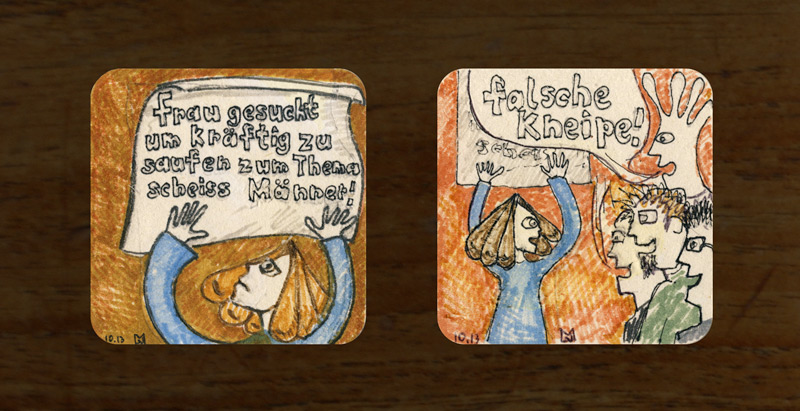 frau gesucht
um kräftig zu
saufen zum Thema
scheiss Männer!
10.13
falsche
Kneipe!
10.13